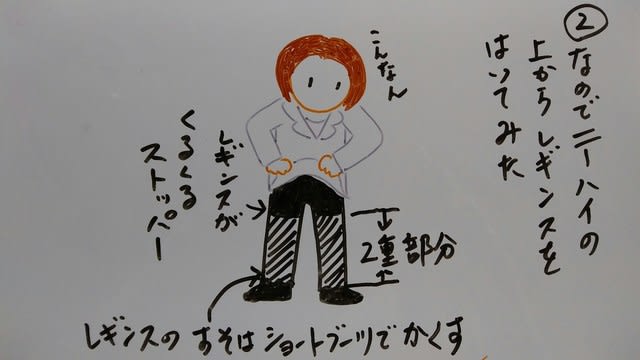 ②なのでニーハイの
上からレギンスを
はいてみた
こんなん
レギンスが
くるくる
ストッパー
2重部分
レギンスのすそはショートブーツでかくす